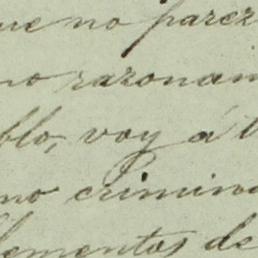 ue no parez
no razonam
blo, voy á t
mo crimina
lementos de